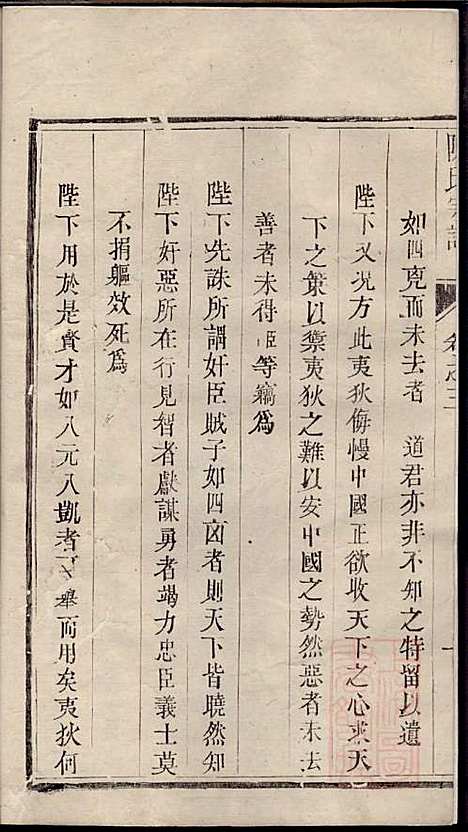 陳氏宗譜 卷之三
如四兇而未去者　道君亦非不知之特留以遺
陛下又況方此夷狄侮慢中國正欲收天下之心求天
下之策以禦夷狄之難以安中國之勢然惡者未去
善者未得臣等竊為
陛下先誅所謂奸臣賊子如四凶者則天下皆曉然知
陛下奸惡所在行見智者獻謀勇者竭力忠臣義士莫
不捐軀效死為
陛下用於是賢才如八元八凱者舉而用矣夷狄何